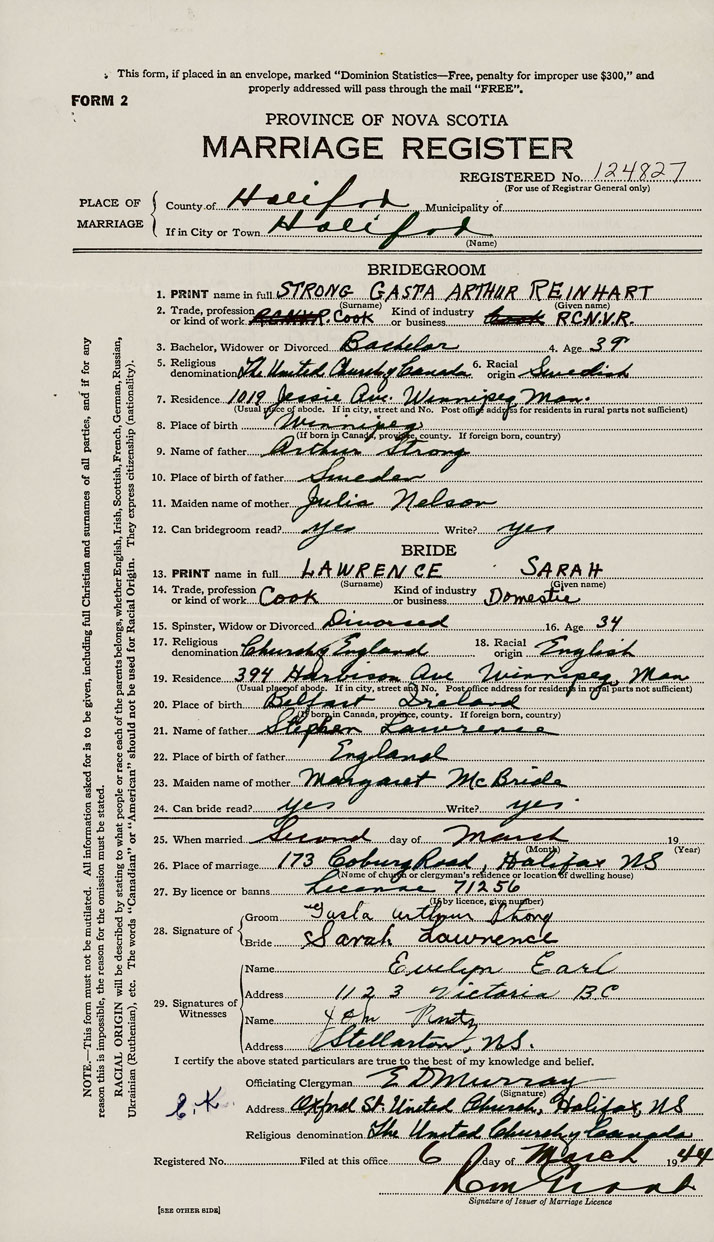 This form, if placed in an envelope, marked "Dominion Statistics—Free, penalty for improper use $300," and
properly addressed will pass through the mail "FREE".
FORM 2
PROVINCE OF NOVA SCOTIA
MARRIAGE REGISTER
REGISTERED No. 124827
(For use of Registrar General only)
PLACE OF MARRIAGE
County of Halifax Municipality of
If in City or Town Halifax
(Name)
BRIDEGROOM
1. PRINT name in full STRONG GASTA ARTHUR REINHART
(Surname) (Given name)
2. Trade, profession or kind of work R.C.N.V.R. Cook Kind of industry or business Cook R.C.N.V.R.
3. Bachelor, Widower or Divorced Bachelor 4. Age 39
5. Religious denomination The United Church of Canada 6. Racial origin Swedish
7. Residence 1019 Jessie Ave. Winnipeg Man.
(Usual place of abode. If in city, street and No. Post office address for residents in rural parts not sufficient)
8. Place of birth Winnipeg
(If born in Canada, province, county. If foreign born, country)
9. Name of father Arthur Strong
10. Place of birth of father Sweden
11. Maiden name of mother Julia Nelson
12. Can bridegroom read? yes Write? yes
BRIDE
13. PRINT name in full LAWRENCE SARAH
(Surname) (Given name)
14. Trade, profession or kind of work Cook Kind of industry or business Domestic
15. Spinster, Widow or Divorced Divorsed 16. Age 34
17. Religious denomination Church of England 18. Racial origin English
19. Residence 394 Harbison Ave Winnipeg, Man
(Usual place of abode. If in city, street and No. Post office address for residents in rural parts not sufficient)
20. Place of birth Belfast Ireland
(If born in Canada, province, county. If foreign born, country)
21. Name of father Stephen Lawrence
22. Place of birth of father England
23. Maiden name of mother Margaret McBride
24. Can bride read? yes Write? yes
25. When married Second day of March 19
(Month) (Year)
26. Place of marriage 173 Coburg Road, Halifax NS
(Name of church or clergyman's residence or location of dwelling house)
27. By licence or banns License 71256
(If by licence, give number)
28. Signature of
Groom Gusta Arthur Strong
Bride Sarah Lawrence
29. Signatures of Witnesses
Name Evelyn Earl
Address 1123 Victoria BC
Name
Address Stellarton, N.S.
I certify the above stated particulars are true to the best of my knowledge and belief.
Officiating Clergyman E D Murray
(Signature)
Address Oxford St. United Church, Halifax, NS
Religious denomination The United Church of Canada
Registered No. Filed at this office 6 day of March 1944
Signature of Issuer of Marriage Licence
[SEE OTHER SIDE]
NOTE.—This form must not be mutilated. All information asked for is to be given, including full Christian and surnames of all parties, and if for any
reason this is impossible, the reason for the omission must be stated.
RACIAL ORIGIN will be described by stating to what people or race each of the parents belongs, whether English, Irish, Scottish, French, German, Russian,
Ukrainian (Ruthenian), etc. The words "Canadian" or "American" should not be used for Racial Origin. They express citizenship (nationality).